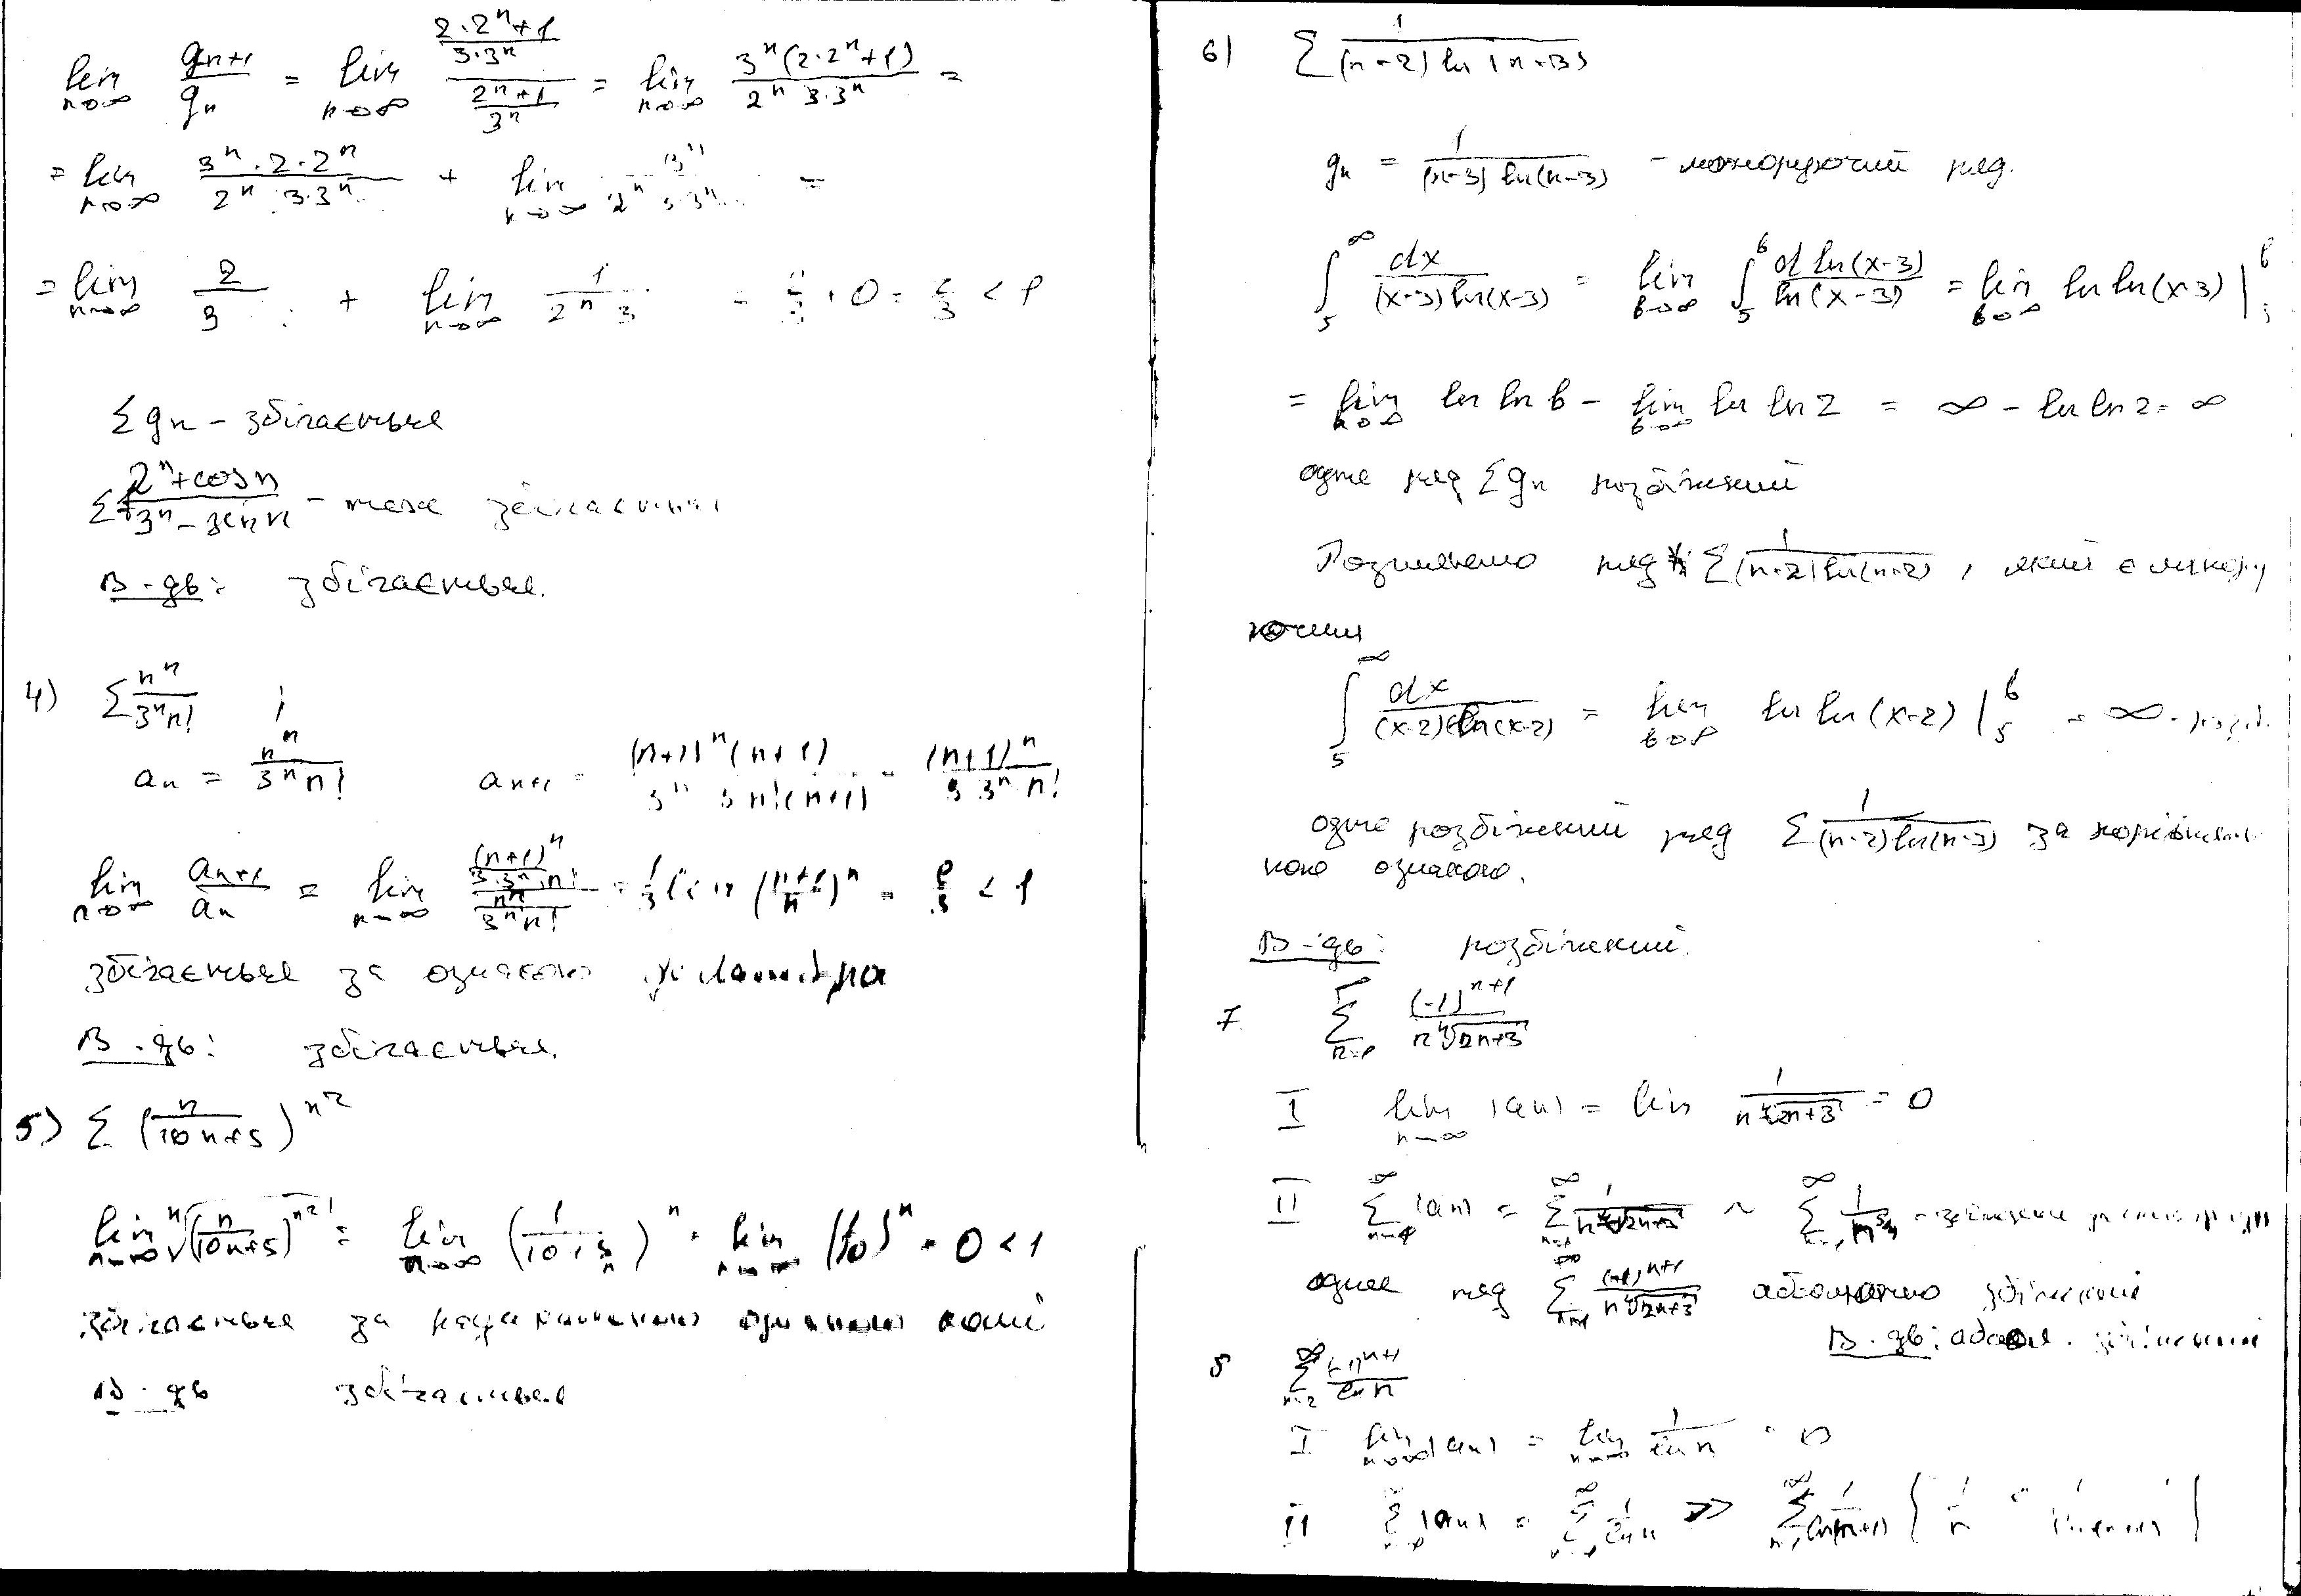 lim n→∞ g_{n+1}/g_n = lim n→∞ ((2·2^n+1)/(3·3^n))/((2^n+1)/3^n) = lim n→∞ 3^n(2·2^n+1)/(2^n 3·3^n) =
= lim n→∞ (3^n·2·2^n)/(2^n 3·3^n) + lim n→∞ 3^n/(2^n 3·3^n) =
= lim n→∞ 2/3 + lim n→∞ 1/(2^n 3) = 2/3 + 0 = 2/3 < 1
Σ g_n – збігається
Σ (2^n+cos n)/(3^n – sin n) – теж збігається
В-дь: збігається.
4) Σ n^n/(3^n n!) ;
a_n = n^n/(3^n n!) a_{n+1} = (n+1)^n (n+1)/(3^n 3 n!(n+1)) = (n+1)^n/(3 3^n n!)
lim n→∞ a_{n+1}/a_n = lim n→∞ ((n+1)^n/(3·3^n·n!))/(n^n/(3^n n!)) = 1/3 lim ((n+1)/n)^n = e/3 < 1
збігається за ознакою Даламбера
В-дь: збігається.
5) Σ (n/(10n+5))^{n^2}
lim n→∞ ^n√((n/(10n+5))^{n^2}) = lim n→∞ (1/(10+5/n))^n = lim n→∞ (1/10)^n = 0 < 1
збігається за радикальною ознакою Коші
В-дь збігається
6) Σ 1/((n-2) ln(n-3))
g_n = 1/((n-3) ln(n-3)) – мажоруючий ряд.
∫_5^∞ dx/((x-3) ln(x-3)) = lim b→∞ ∫_5^b d ln(x-3)/ln(x-3) = lim b→∞ ln ln(x-3) |_5^b
= lim b→∞ ln ln b – lim b→∞ ln ln 2 = ∞ – ln ln 2 = ∞
отже ряд Σ g_n розбіжний
Розглянемо ряд Σ 1/((n-2) ln(n-2)), який є мінору
ючим
∫_5^∞ dx/((x-2) ln(x-2)) = lim b→∞ ln ln(x-2) |_5^b = ∞ - розб.
отже розбіжний ряд Σ 1/((n-2) ln(n-3)) за порівняль
ною ознакою.
В-дь: розбіжний.
7. Σ_{n=1}^∞ (-1)^{n+1}/(n ⁴√(2n+3))
I lim n→∞ |a_n| = lim 1/(n ⁴√(2n+3)) = 0
II Σ_{n=1}^∞ |a_n| = Σ_{n=1}^∞ 1/(n ⁴√(2n+3)) ~ Σ_{n=1}^∞ 1/n^{5/4} –
отже ряд Σ_{n=1}^∞ (-1)^{n+1}/(n ⁴√(2n+3)) абсолютно збіжний
В-дь: абсол. збіжний
8 Σ_{n=2}^∞ (-1)^{n+1}/ln n
I lim n→∞ |a_n| = lim n→∞ 1/ln n = 0
II Σ |a_n| = Σ^∞ 1/ln n ≫ Σ^∞ 1/ln(n+1)